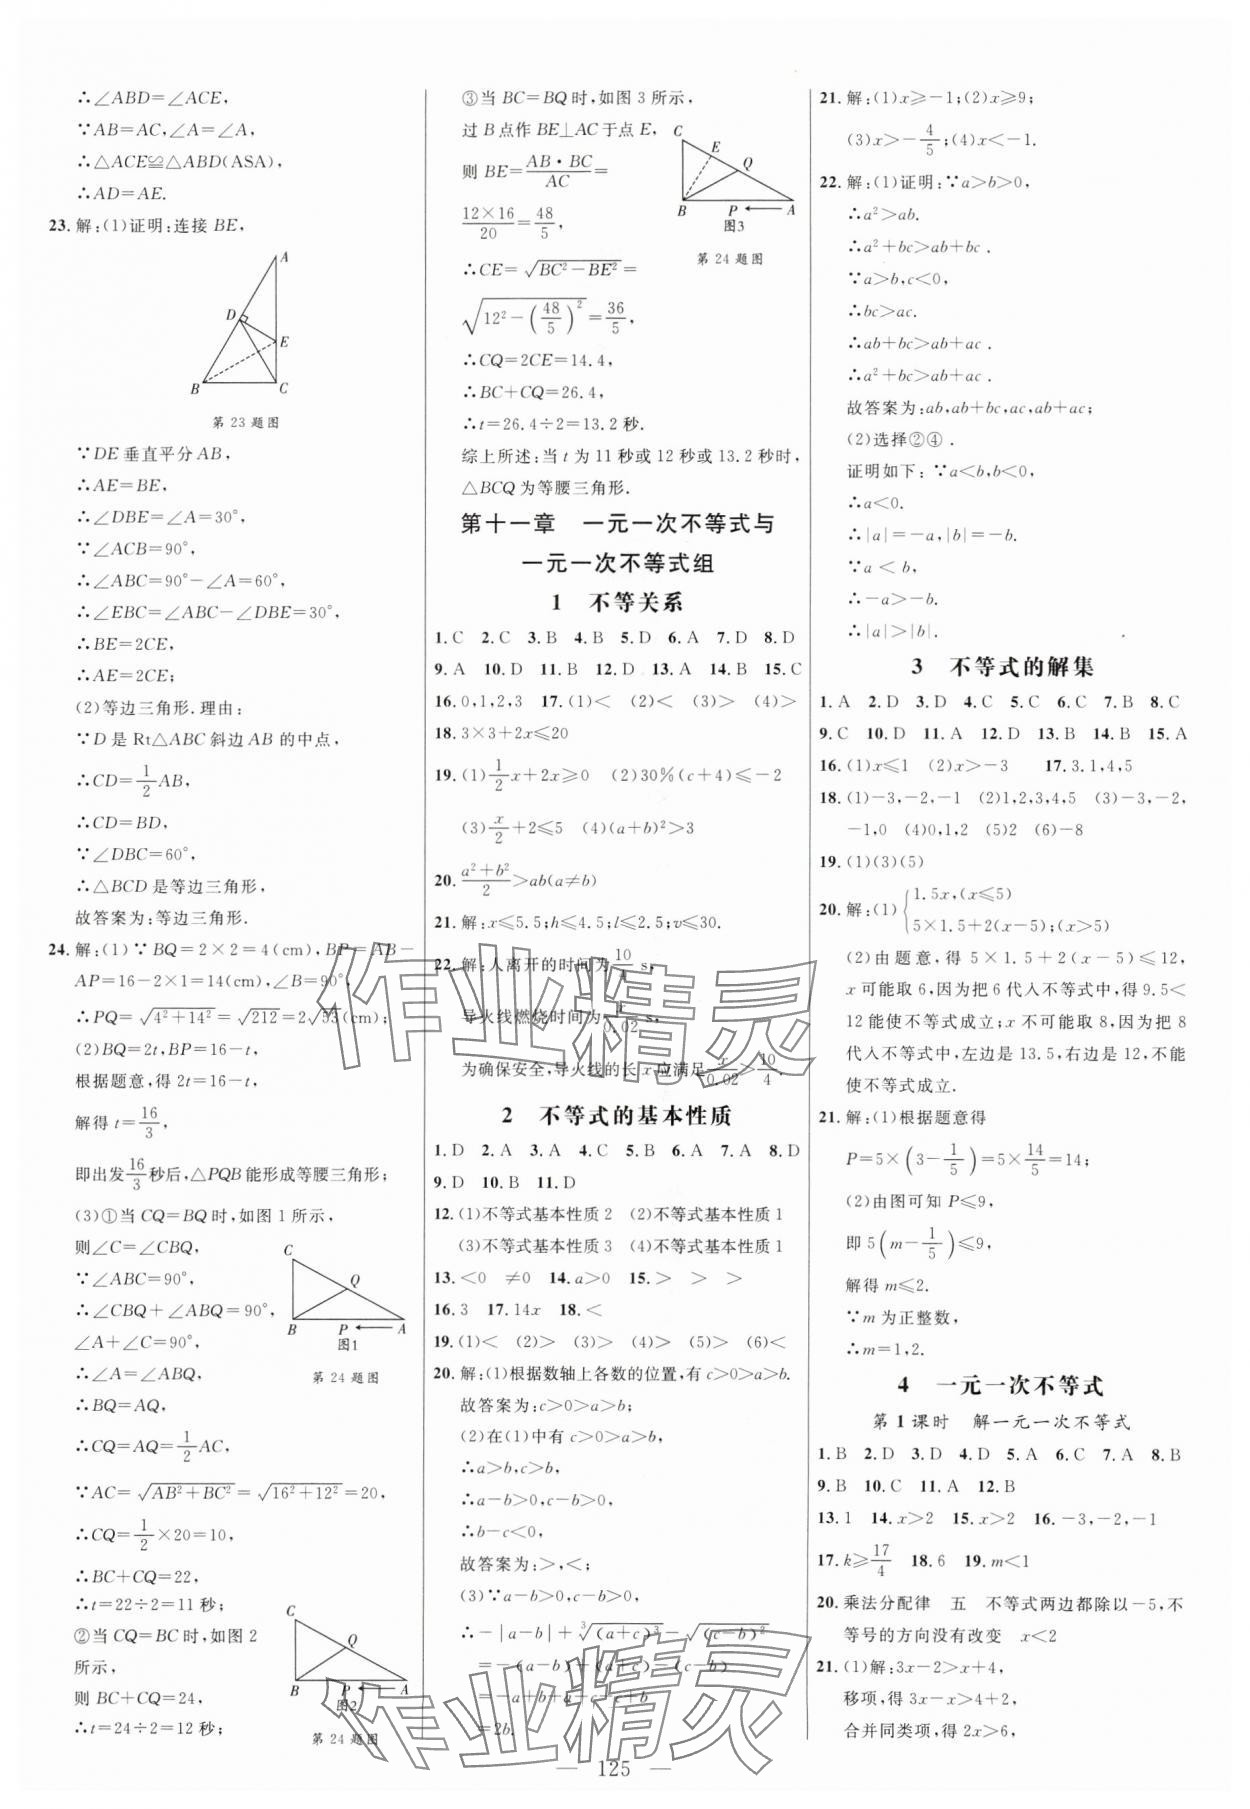 ∴∠ABD=∠ACE,
∵AB=AC,∠A=∠A,
∴△ACE≌△ABD(ASA),
∴AD=AE.
23.解:(1)证明:连接 BE,
A
D
E
B
C
第 23 题图
∵DE 垂直平分 AB,
∴AE=BE,
∴∠DBE=∠A=30°,
∵∠ACB=90°,
∴∠ABC=90°-∠A=60°,
∴∠EBC=∠ABC-∠DBE=30°,
∴BE=2CE,
∴AE=2CE;
(2)等边三角形.理由:
∵D 是 Rt△ABC 斜边 AB 的中点,
∴CD=1/2AB,
∴CD=BD,
∵∠DBC=60°,
∴△BCD 是等边三角形,
故答案为:等边三角形.
24.解:(1)∵BQ=2×2=4(cm),BP=AB-
AP=16-2×1=14(cm),∠B=90°,
∴PQ=√(4²+14²)=√212=2√53(cm);
(2)BQ=2t,BP=16-t,
根据题意,得 2t=16-t,
解得 t=16/3,
即出发16/3秒后,△PQB 能形成等腰三角形;
(3)①当 CQ=BQ 时,如图 1 所示,
则∠C=∠CBQ,
∵∠ABC=90°,
∴∠CBQ+∠ABQ=90°,
∠A+∠C=90°,
C
Q
B
P
A
图1
第 24 题图
∴∠A=∠ABQ,
∴BQ=AQ,
∴CQ=AQ=1/2AC,
∵AC=√(AB²+BC²)=√(16²+12²)=20,
∴CQ=1/2×20=10,
∴BC+CQ=22,
∴t=22÷2=11 秒;
②当 CQ=BC 时,如图 2
所示,
则 BC+CQ=24,
∴t=24÷2=12 秒;
C
Q
B
P
A
图2
第 24 题图
③当 BC=BQ 时,如图 3 所示,
过 B 点作 BE⊥AC 于点 E,
则 BE=AB·BC/AC=
12×16/20=48/5,
C
E
Q
B
P
A
图3
第 24 题图
∴CE=√(BC²-BE²)=
√(12²-(48/5)²)=36/5,
∴CQ=2CE=14.4,
∴BC+CQ=26.4,
∴t=26.4÷2=13.2 秒.
综上所述:当 t 为 11 秒或 12 秒或 13.2 秒时,
△BCQ 为等腰三角形.
第十一章 一元一次不等式与
一元一次不等式组
1 不等关系
1.C 2.C 3.B 4.B 5.D 6.A 7.D 8.D
9.A 10.D 11.B 12.D 13.A 14.B 15.C
16.0,1,2,3 17.(1)< (2)< (3)> (4)>
18.3×3+2x≤20
19.(1)1/2x+2x≥0 (2)30%(c+4)≤-2
(3)x/2+2≤5 (4)(a+b)²>3
20.(a²+b²)/2>ab(a≠b)
21.解:x≤5.5;h≤4.5;l≤2.5;v≤30.
22.解:人离开的时间为10/4 s,
导火线燃烧时间为x/0.02 s,
为确保安全,导火线的长 x 应满足x/0.02>10/4.
2 不等式的基本性质
1.D 2.A 3.A 4.C 5.B 6.A 7.A 8.D
9.D 10.B 11.D
12.(1)不等式基本性质 2 (2)不等式基本性质 1
(3)不等式基本性质 3 (4)不等式基本性质 1
13.<0 ≠0 14.a>0 15.> > >
16.3 17.14x 18.<
19.(1)< (2)> (3)> (4)> (5)> (6)<
20.解:(1)根据数轴上各数的位置,有 c>0>a>b.
故答案为:c>0>a>b;
(2)在(1)中有 c>0>a>b,
∴a>b,c>b,
∴a-b>0,c-b>0,
∴b-c<0,
故答案为:>,<;
(3)∵a-b>0,c-b>0,
∴-|a-b|+∛(a+c)³-√(c-b)²
=-(a-b)+(a+c)-(c-b)
=-a+b+a+c-c+b
=2b.
21.解:(1)x≥-1;(2)x≥9;
(3)x>-4/5;(4)x<-1.
22.解:(1)证明:∵a>b>0,
∴a²>ab.
∴a²+bc>ab+bc.
∵a>b,c<0,
∴bc>ac.
∴ab+bc>ab+ac.
∴a²+bc>ab+ac.
故答案为:ab,ab+bc,ac,ab+ac;
(2)选择②④.
证明如下:∵a<b,b<0,
∴a<0.
∴|a|=-a,|b|=-b.
∵a<b,
∴-a>-b.
∴|a|>|b|.
3 不等式的解集
1.A 2.D 3.D 4.C 5.C 6.C 7.B 8.C
9.C 10.D 11.A 12.D 13.B 14.B 15.A
16.(1)x≤1 (2)x>-3 17.3,1,4,5
18.(1)-3,-2,-1 (2)1,2,3,4,5 (3)-3,-2,
-1,0 (4)0,1,2 (5)2 (6)-8
19.(1)(3)(5)
20.解:(1){1.5x,(x≤5)
5×1.5+2(x-5);(x>5)
(2)由题意,得 5×1.5+2(x-5)≤12,
x 可能取 6,因为把 6 代入不等式中,得 9.5<
12 能使不等式成立;x 不可能取 8,因为把 8
代入不等式中,左边是 13.5,右边是 12,不能
使不等式成立.
21.解:(1)根据题意得
P=5×(3-1/5)=5×14/5=14;
(2)由图可知 P≤9,
即 5(m-1/5)≤9,
解得 m≤2.
∵m 为正整数,
∴m=1,2.
4 一元一次不等式
第 1 课时 解一元一次不等式
1.B 2.D 3.D 4.D 5.A 6.C 7.A 8.B
9.B 10.C 11.A 12.B
13.1 14.x>2 15.x>2 16.-3,-2,-1
17.k≥17/4 18.6 19.m<1
20.乘法分配律 五 不等式两边都除以-5,不
等号的方向没有改变 x<2
21.(1)解:3x-2>x+4,
移项,得 3x-x>4+2,
合并同类项,得 2x>6,
125
作业精灵
作业精灵